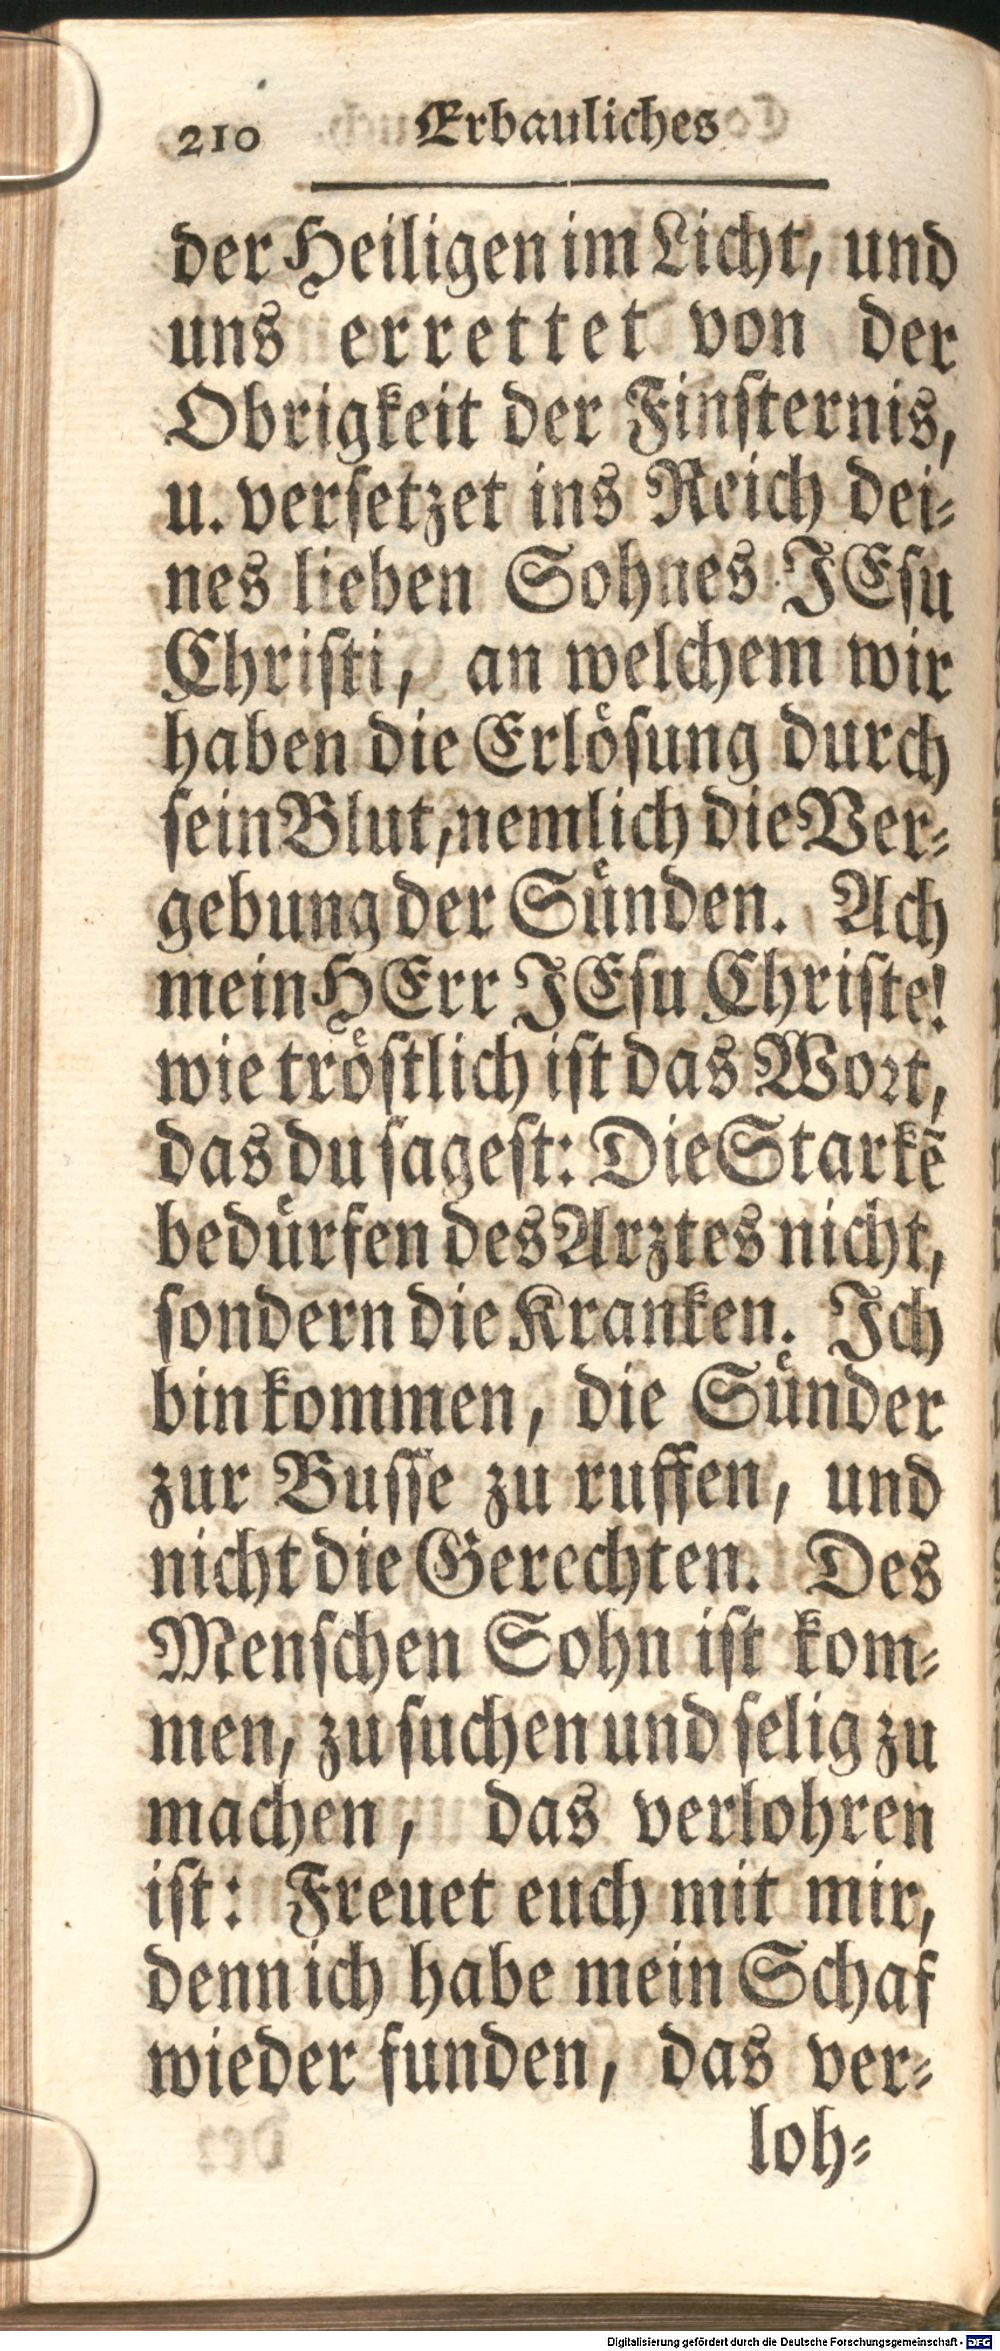 210 Erbauliches
der Heiligen im Licht, und
uns errettet von der
Obrigkeit der Finsternis,
u. versetzet ins Reich dei-
nes lieben Sohnes JEsu
Christi, an welchem wir
haben die Erlösung durch
sein Blut, nemlich die Ver-
gebung der Sünden. Ach
mein HErr JEsu Christe!
wie tröstlich ist das Wort,
das du sagest: Die Starkẽ
bedürfen des Arztes nicht,
sondern die Kranken. Ich
bin kommen, die Sünder
zur Busse zu ruffen, und
nicht die Gerechten. Des
Menschen Sohn ist kom-
men, zu suchen und selig zu
machen, das verlohren
ist: Freuet euch mit mir,
denn ich habe mein Schaf
wieder funden, das ver-
loh-
Digitalisierung gefördert durch die Deutsche Forschungsgemeinschaft - DFG